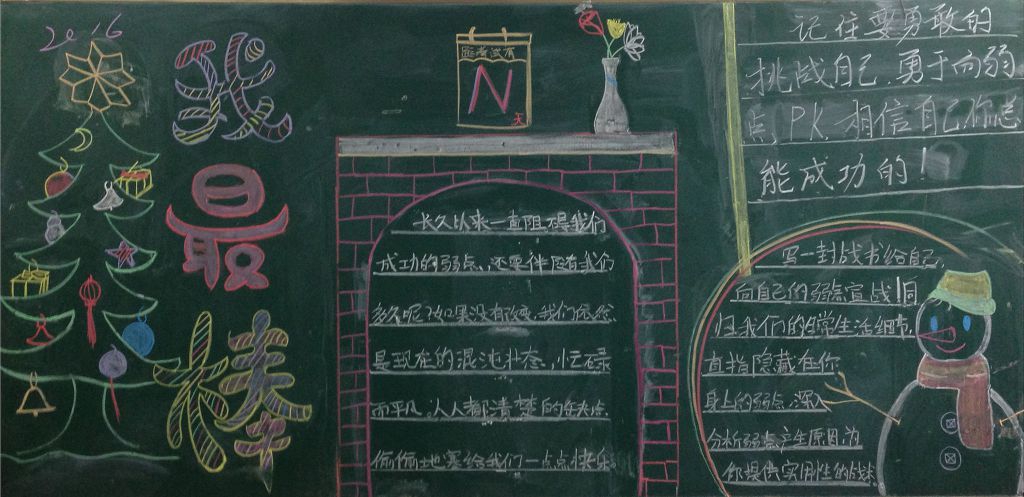 2016
我
最
棒
距考试有
N
天
长久以来一直阻碍我们
成功的弱点，还要伴随我们
多久呢？如果没有改变，我们依然
是现在的混沌状态，忙碌
而平凡。人人都清楚的缺点，
偷偷地塞给我们一点点快乐。
记住要勇敢的
挑战自己 勇于向弱
点PK 相信自己你总
能成功的！
写一封战书给自己，
向自己的弱点宣战！回
归我们的日常生活细节，
直指隐藏在你
身上的弱点，深入
分析弱点产生原因，为
你提供实用性的战术